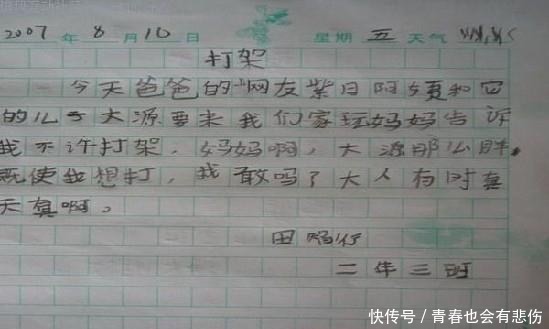 2007年8月10日 星期五 天气
打架
今天爸爸的"网友紫日阿姨和它
的儿子大源要来我们家玩妈妈告诉
我不许打架，妈妈啊，大源那么胖，
既使我想打，我敢吗？大人有时真
天真啊。
田
二年三班
快传号/青春也会有悲伤